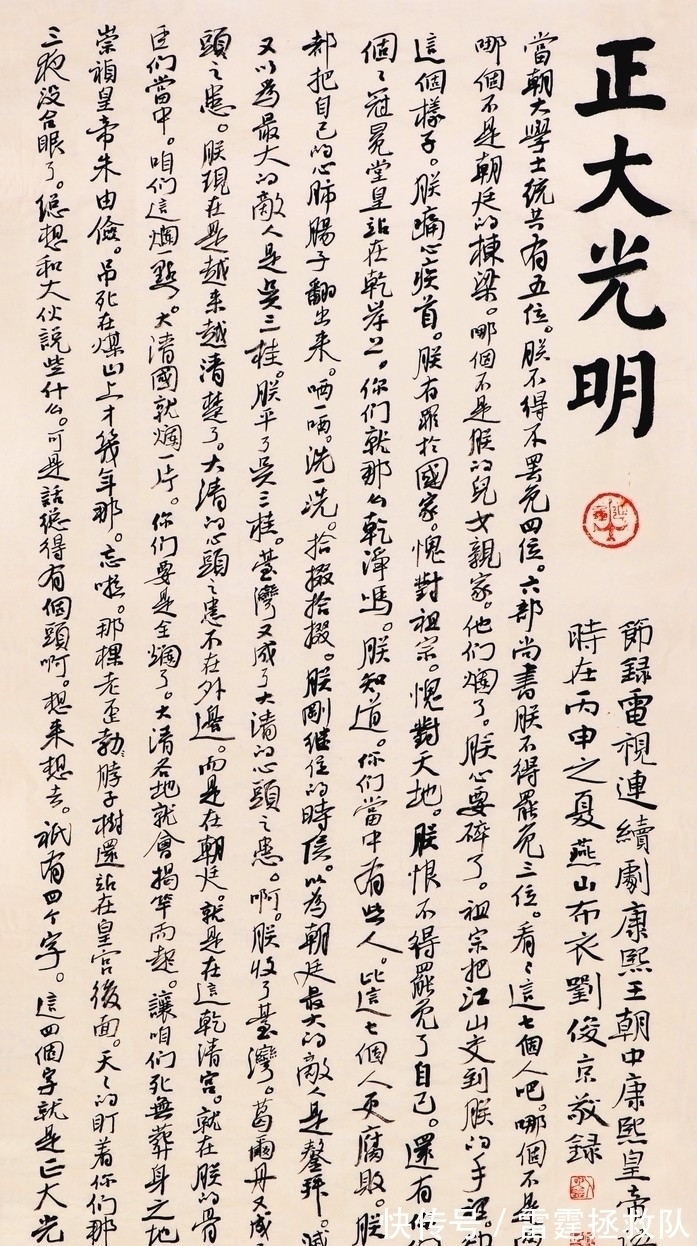 正大光明
當朝大學士統共有五位。朕不得不罷免四位。六部尚書朕不得罷免三位。看〻這七個人吧。哪個不是
哪個不是朝廷的棟梁。哪個不是朕的兒女親家。他們爛了。朕心要碎了。祖宗把江山交到朕的手裡。
這個樣子。朕痛心疾首。朕有罪於國家。愧對祖宗。愧對天地。朕恨不得罷免了自己。還有你
個〻冠冕堂皇站在乾岸上。你們就那么乾淨嗎。朕知道。你們當中有些人。比這七個人更腐敗。朕
都把自己的心肺腸子翻出来。晒一晒。洗一洗。拾掇拾掇。朕剛继位的時候。以為朝廷最大的敵人是鰲拜。滅
又以為最大的敵人是吳三桂。朕平了吳三桂。臺灣又成了大清的心頭之患。啊。朕收了臺灣。葛爾丹又成
頭之患。朕現在是越来越清楚了。大清的心頭之患不在外邊。而是在朝廷。就是在這乾清宮。就在朕的骨
臣们當中。咱們這爛一點。大清國就爛一片。你們要是全爛了。大清各地就會揭竿而起。讓咱们死無葬身之地
崇禎皇帝朱由儉。吊死在煤山上才幾年那。忘啦。那棵老歪勃脖子樹還站在皇宮後面。天〻的盯着你们那
三夜没合眼了。總想和大伙說些什么。可是話總得有個頭啊。想来想去。祇有四个字。這四個字就是正大光
節録電視連續劇康熙王朝中康熙皇帝
時在丙申之夏燕山布衣劉俊京敬録
快传号／雷霆拯救队